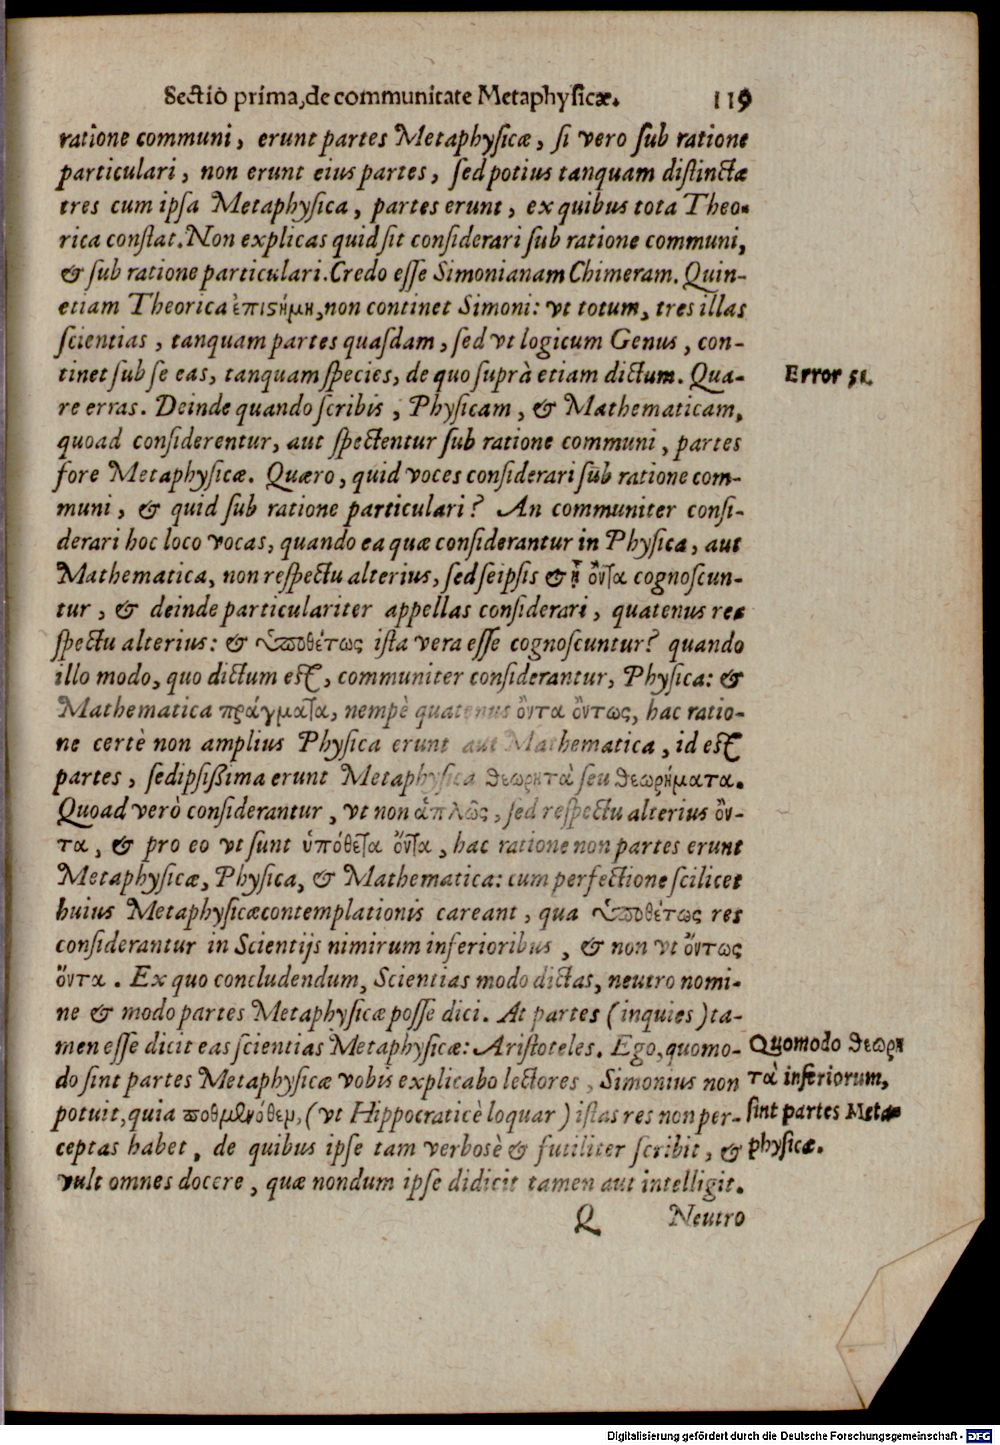 Sectio prima, de communitate Metaphysicæ. 119
ratione communi, erunt partes Metaphysicæ, si vero sub ratione
particulari, non erunt eius partes, sed potius tanquam distinctæ
tres cum ipsa Metaphysica, partes erunt, ex quibus tota Theo-
rica constat. Non explicas quid sit considerari sub ratione communi,
& sub ratione particulari. Credo esse Simonianam Chimeram. Quin-
etiam Theorica ἐπιςήμη, non continet Simoni: vt totum, tres illas
scientias, tanquam partes quasdam, sed vt logicum Genus, con-
tinet sub se eas, tanquam species, de quo suprà etiam dictum. Qua-
Error 51.
re erras. Deinde quando scribis, Physicam, & Mathematicam,
quoad considerentur, aut spectentur sub ratione communi, partes
fore Metaphysicæ. Quæro, quid voces considerari sub ratione com-
muni, & quid sub ratione particulari? An communiter consi-
derari hoc loco vocas, quando ea quæ considerantur in Physica, aut
Mathematica, non respectu alterius, sed seipsis & ᾗ ὄντα cognoscun-
tur, & deinde particulariter appellas considerari, quatenus re-
spectu alterius: & ὑποθέτως ista vera esse cognoscuntur? quando
illo modo, quo dictum est, communiter considerantur, Physica: &
Mathematica πράγματα, nempè quatenus ὄντα ὄντως, hac ratio-
ne certè non amplius Physica erunt aut Mathematica, id est
partes, sed ipsißima erunt Metaphysica θεωρητὰ seu θεωρήματα.
Quoad verò considerantur, vt non ἁπλῶς, sed respectu alterius ὄν-
τα, & pro eo vt sunt ὑπόθετα ὄντα, hac ratione non partes erunt
Metaphysicæ, Physica, & Mathematica: cum perfectione scilicet
huius Metaphysicæ contemplationis careant, qua ὑποθέτως res
considerantur in Scientijs nimirum inferioribus, & non vt ὄντως
ὄντα. Ex quo concludendum, Scientias modo dictas, neutro nomi-
ne & modo partes Metaphysicæ posse dici. At partes (inquies) ta-
men esse dicit eas scientias Metaphysicæ: Aristoteles. Ego, quomo-
do sint partes Metaphysicæ vobis explicabo lectores, Simonius non
potuit, quia (vt Hippocraticè loquar) istas res non per-
ceptas habet, de quibus ipse tam verbosè & futiliter scribit, &
vult omnes docere, quæ nondum ipse didicit tamen aut intelligit.
Quomodo θεωρη
τὰ inferiorum,
sint partes Meta-
physicæ.
Q Neutro
Digitalisierung gefördert durch die Deutsche Forschungsgemeinschaft - DFG